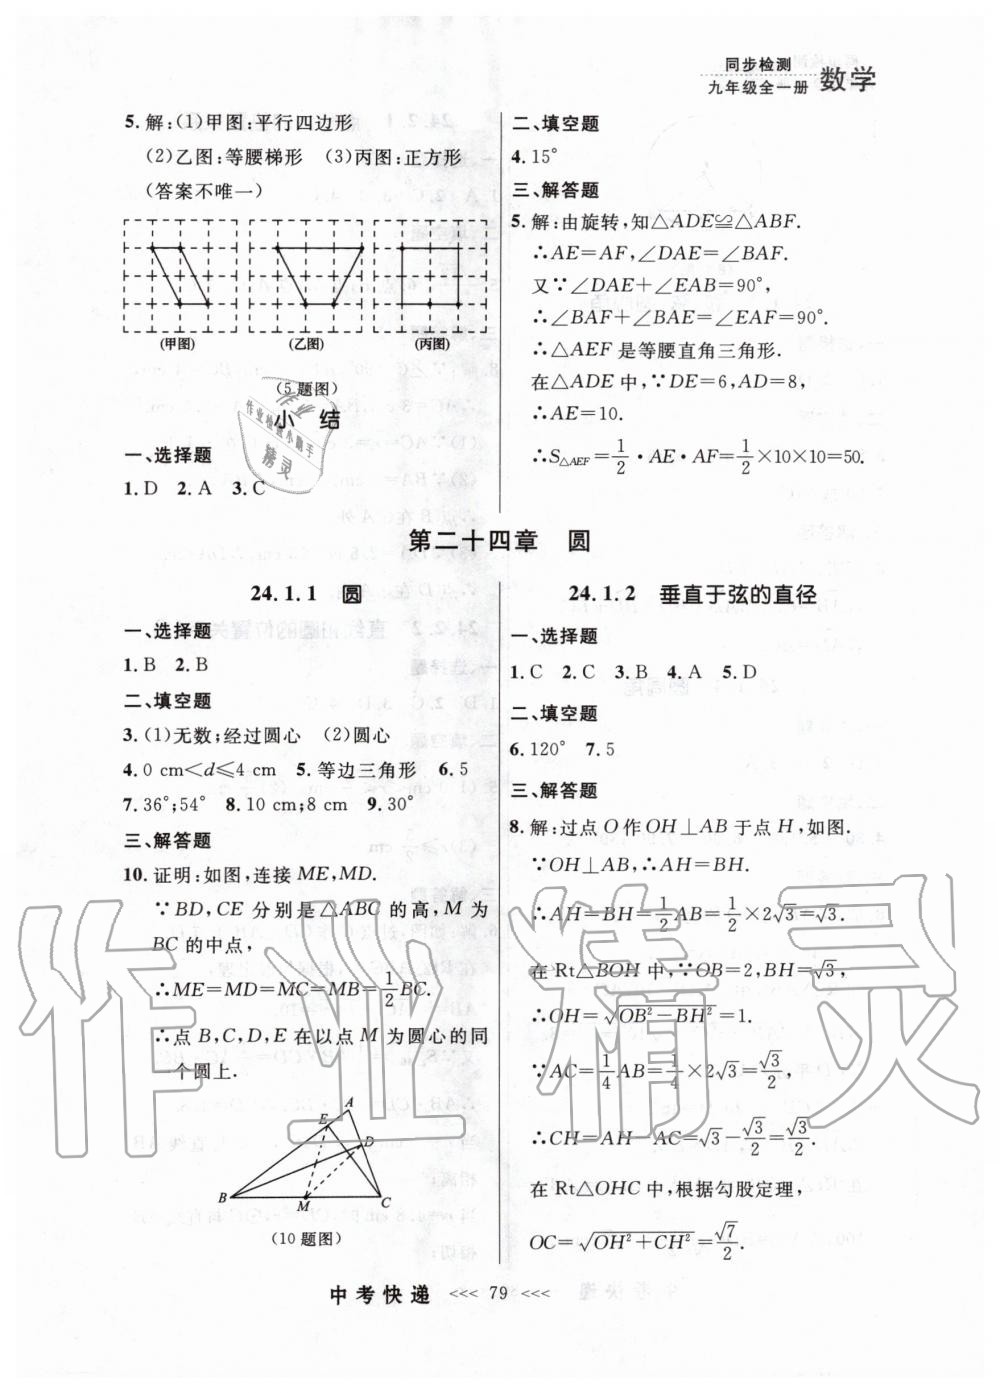 同步检测
九年级全一册 数学
5.解:(1)甲图:平行四边形
(2)乙图:等腰梯形 (3)丙图:正方形
(答案不唯一)
(甲图) (乙图) (丙图)
(5题图)
小 结
一、选择题
1.D 2.A 3.C
二、填空题
4.15°
三、解答题
5.解:由旋转,知△ADE≌△ABF.
∴AE=AF,∠DAE=∠BAF.
又∵∠DAE+∠EAB=90°,
∴∠BAF+∠BAE=∠EAF=90°.
∴△AEF是等腰直角三角形.
在△ADE中,∵DE=6,AD=8,
∴AE=10.
∴S△AEF=1/2·AE·AF=1/2×10×10=50.
第二十四章 圆
24.1.1 圆
一、选择题
1.B 2.B
二、填空题
3.(1)无数;经过圆心 (2)圆心
4.0 cm<d≤4 cm 5.等边三角形 6.5
7.36°;54° 8.10 cm;8 cm 9.30°
三、解答题
10.证明:如图,连接ME,MD.
∵BD,CE分别是△ABC的高,M为
BC的中点,
∴ME=MD=MC=MB=1/2BC.
∴点B,C,D,E在以点M为圆心的同
一个圆上.
A
E
D
B M C
(10题图)
24.1.2 垂直于弦的直径
一、选择题
1.C 2.C 3.B 4.A 5.D
二、填空题
6.120° 7.5
三、解答题
8.解:过点O作OH⊥AB于点H,如图.
∵OH⊥AB,∴AH=BH.
∴AH=BH=1/2AB=1/2×2√3=√3.
在Rt△BOH中,∵OB=2,BH=√3,
∴OH=√(OB²-BH²)=1.
∵AC=1/4AB=1/4×2√3=√3/2,
∴CH=AH-AC=√3-√3/2=√3/2.
在Rt△OHC中,根据勾股定理,
OC=√(OH²+CH²)=√7/2.
中考快递 <<< 79 <<<
作业检查小助手
精灵
作业精灵